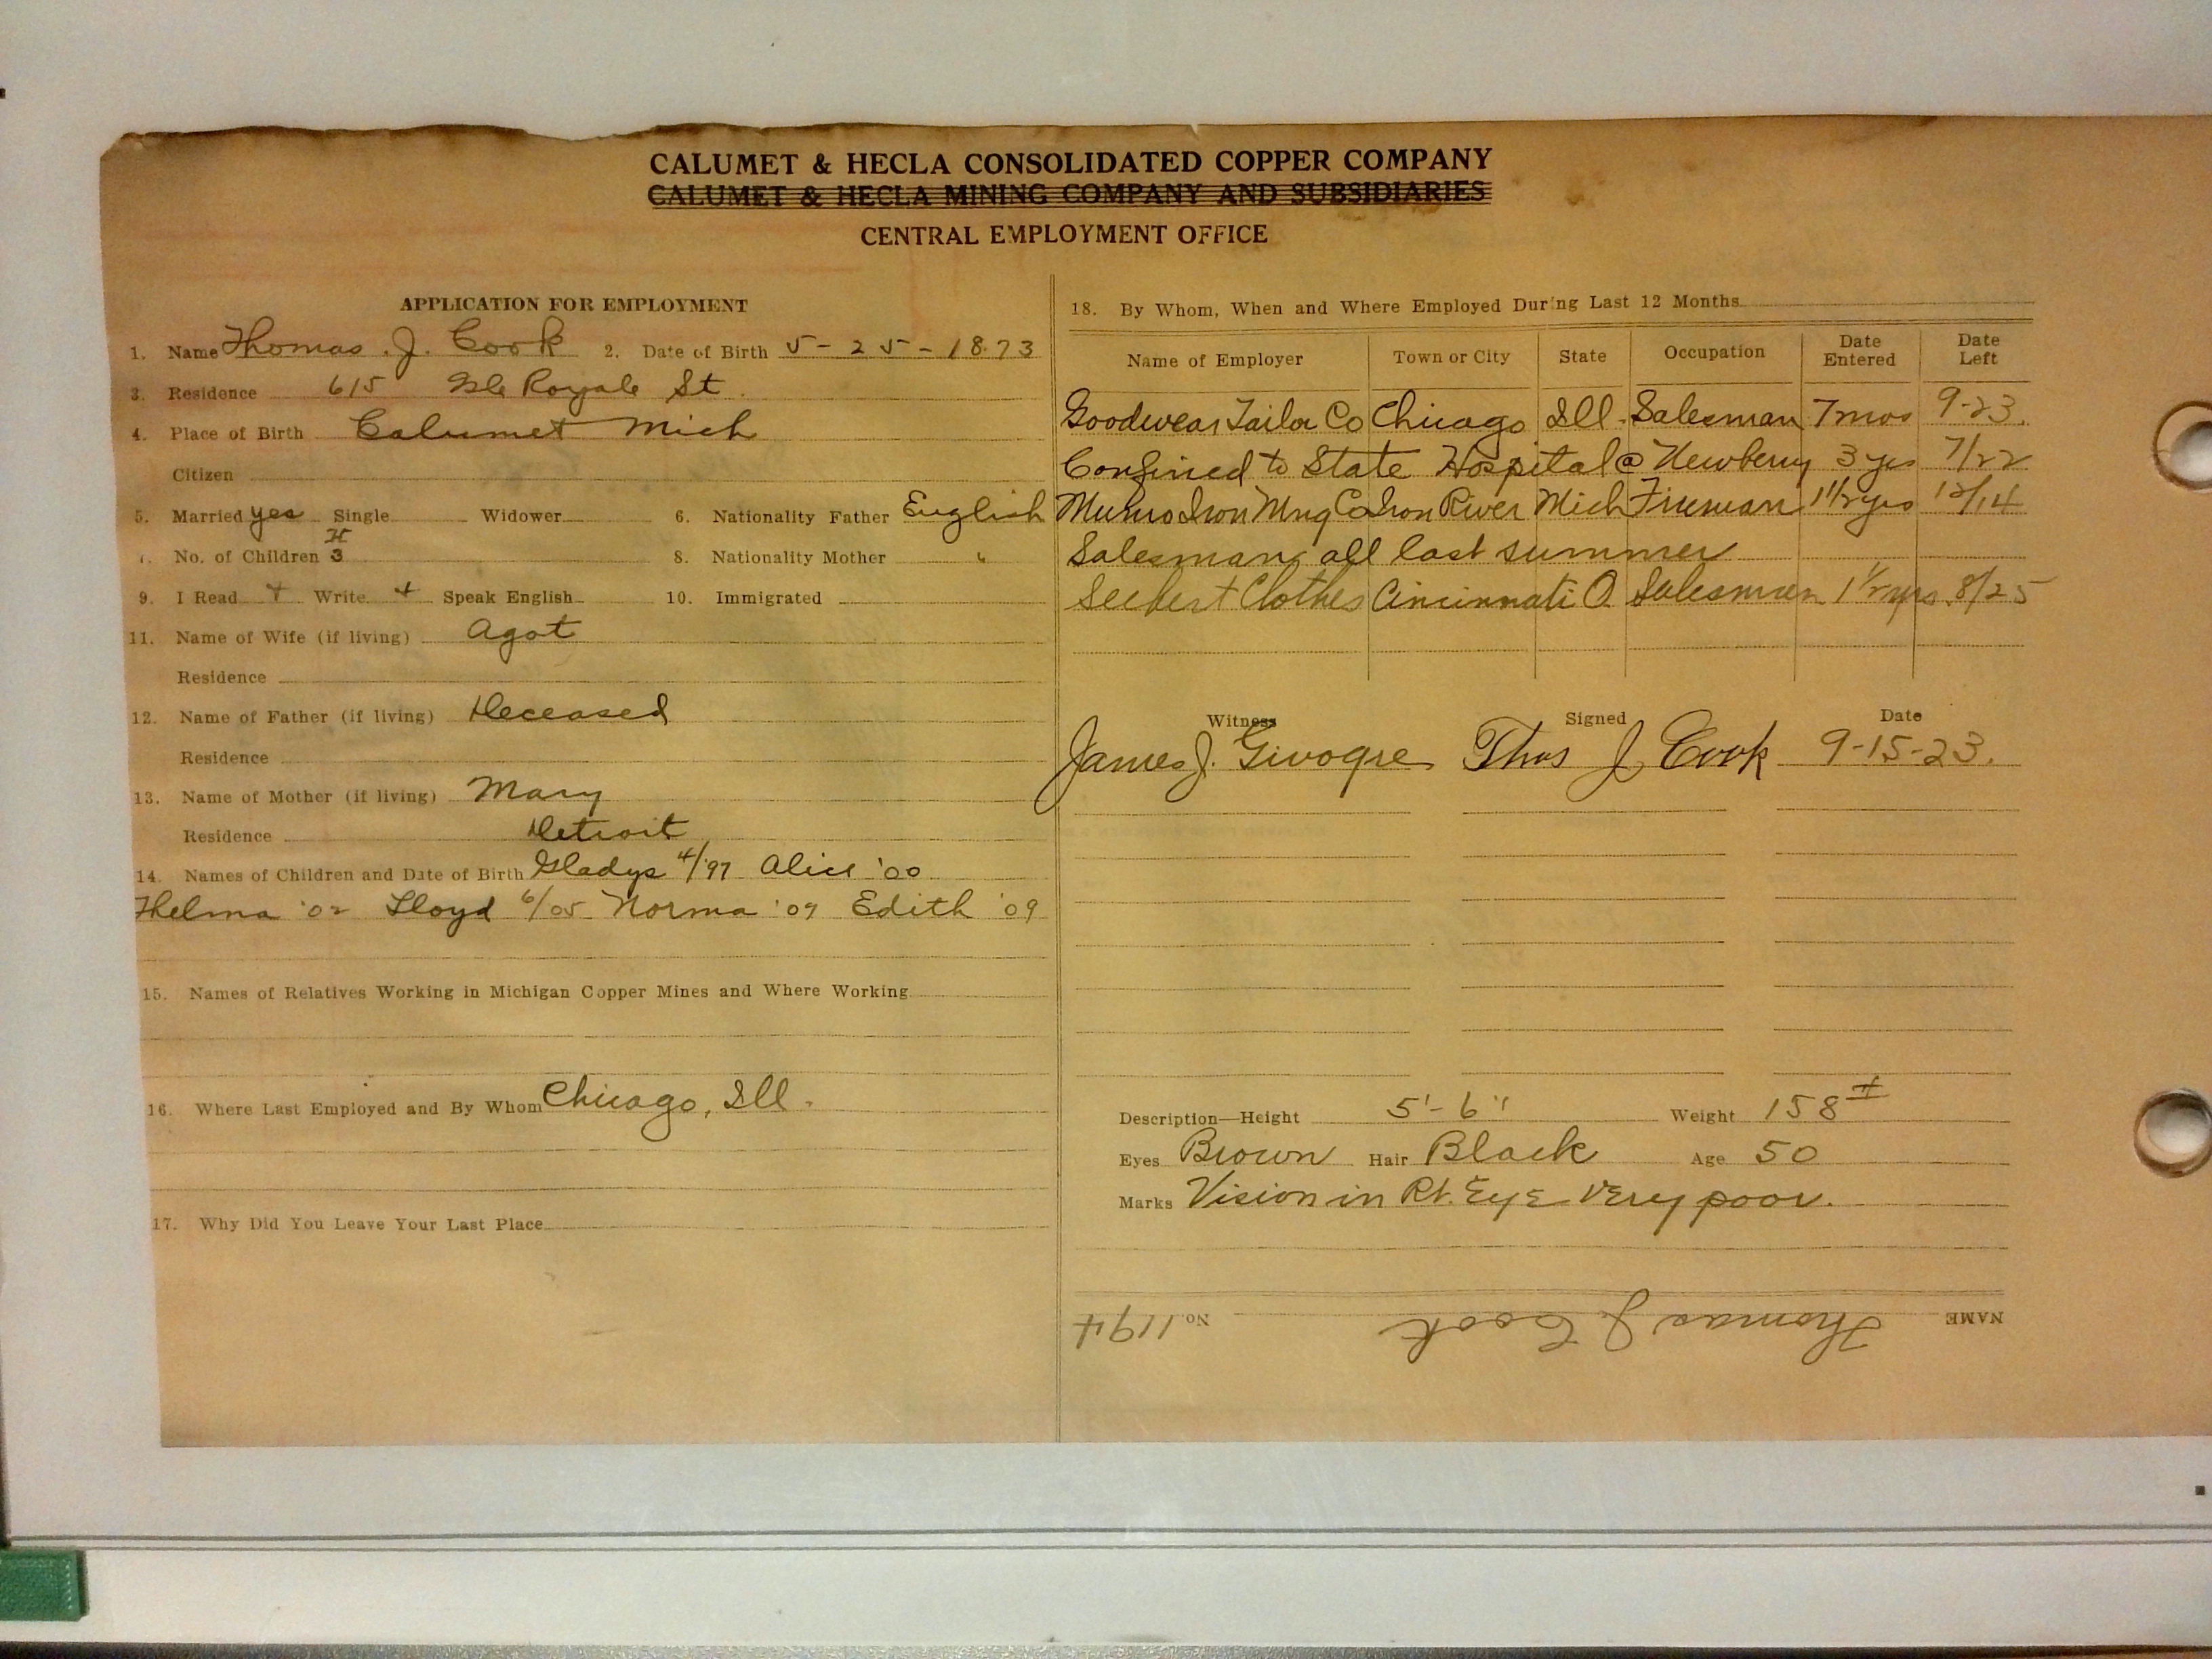 CALUMET & HECLA CONSOLIDATED COPPER COMPANY
CALUMET & HECLA MINING COMPANY AND SUBSIDIARIES
CENTRAL EMPLOYMENT OFFICE
APPLICATION FOR EMPLOYMENT
1. Name Thomas. J. Cook 2. Date of Birth 5-25-1873
3. Residence 615 Isle Royale St.
4. Place of Birth Calumet Mich
Citizen
5. Married yes Single Widower 6. Nationality Father English
7. No. of Children 3 8. Nationality Mother "
9. I Read + Write + Speak English 10. Immigrated
11. Name of Wife (if living) Agot
Residence
12. Name of Father (if living) Deceased
Residence
13. Name of Mother (if living) Mary
Residence Detroit
14. Names of Children and Date of Birth Gladys 4/'97 Alice '00
Thelma '02 Lloyd 6/05 Norma '07 Edith '09
15. Names of Relatives Working in Michigan Copper Mines and Where Working
16. Where Last Employed and By Whom Chicago, Ill.
17. Why Did You Leave Your Last Place
18. By Whom, When and Where Employed During Last 12 Months
Name of Employer Town or City State Occupation Date Entered Date Left
Goodwear Tailor Co Chicago Ill. Salesman 7 mos 9-23.
Confined to State Hospital @ Newberry 3 yrs 7/22
Munro Iron Mng Co Iron River Mich Fireman 1 1/2 yrs 12/14
Salesman all last summer
Seebert Clothes Cincinnati O Salesman 1 1/2 yrs. 8/25
Witness Signed Date
James J. Thos J Cook 9-15-23.
Description—Height 5'-6" Weight 158#
Eyes Brown Hair Black Age 50
Marks Vision in Rt. Eye very poor.
NAME Thomas J. Cook No. 1194